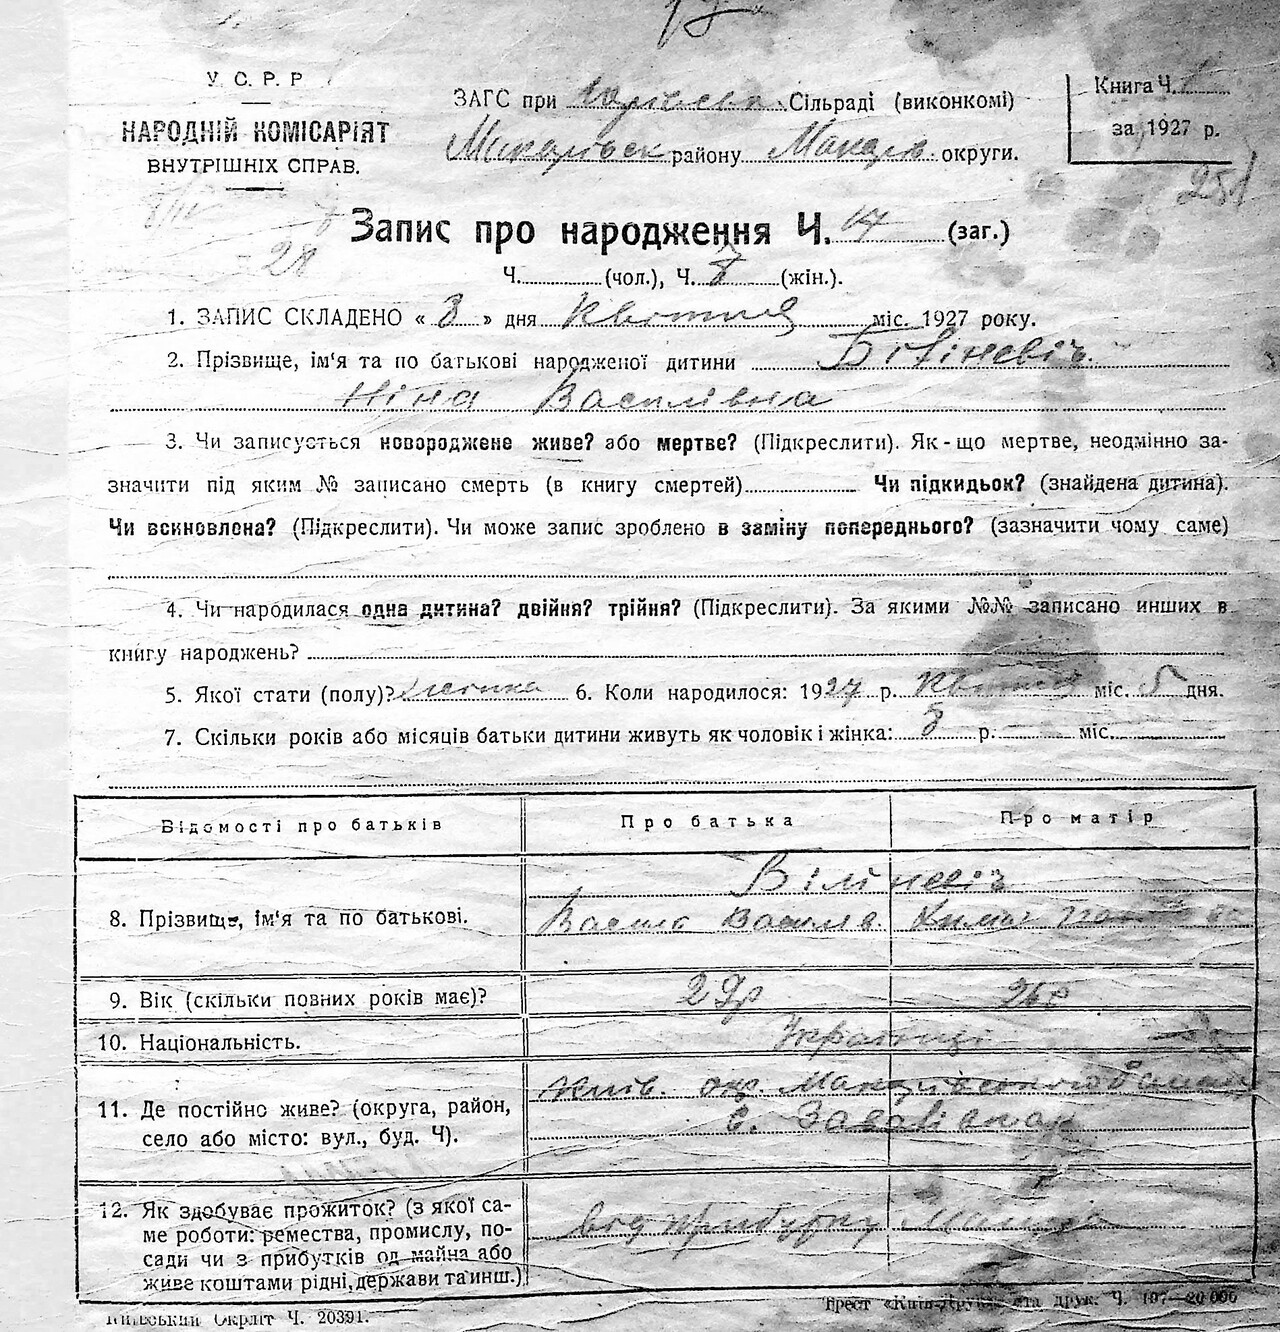 У. С. Р. Р.
НАРОДНІЙ КОМІСАРІЯТ
ВНУТРІШНІХ СПРАВ.
ЗАГС при Сільраді (виконкомі)
району округи.
Книга Ч.
за 1927 р.
Запис про народження Ч. 17 (заг.)
Ч. (чол.), Ч. 7 (жін.).
1. ЗАПИС СКЛАДЕНО « 8 » дня Квітня міс. 1927 року.
2. Прізвище, ім'я та по батькові народженої дитини
Ніна Василівна
3. Чи записується новороджене живе? або мертве? (Підкреслити). Як-що мертве, неодмінно за-
значити під яким № записано смерть (в книгу смертей) Чи підкидьок? (знайдена дитина).
Чи всиновлена? (Підкреслити). Чи може запис зроблено в заміну попереднього? (зазначити чому саме)
4. Чи народилася одна дитина? двійня? трійня? (Підкреслити). За якими №№ записано инших в
книгу народжень?
5. Якої стати (полу)? 6. Коли народилося: 1927 р. Квітня міс. 5 дня.
7. Скільки років або місяців батьки дитини живуть як чоловік і жінка: 8 р. міс.
Відомості про батьків Про батька Про матір
8. Прізвище, ім'я та по батькові.
Василь
9. Вік (скільки повних років має)? 29р 26р
10. Національність. Українці
11. Де постійно живе? (округа, район,
село або місто: вул., буд. Ч).
Київ. окр.
с.
12. Як здобуває прожиток? (з якої са-
ме роботи: ремества, промислу, по-
сади чи з прибутків од майна або
живе коштами рідні, держави та инш.)
від прибутку
Київський Окрліт Ч. 20391.
Трест «Київ-Друк» Ч. 107—20 000